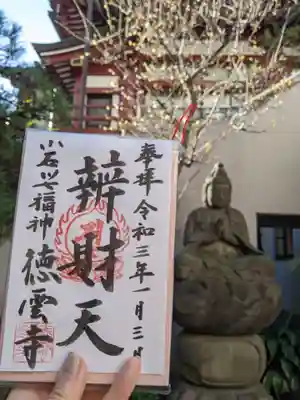 奉拝 令和三年一月三日
辨財天
小石川七福神 徳雲寺